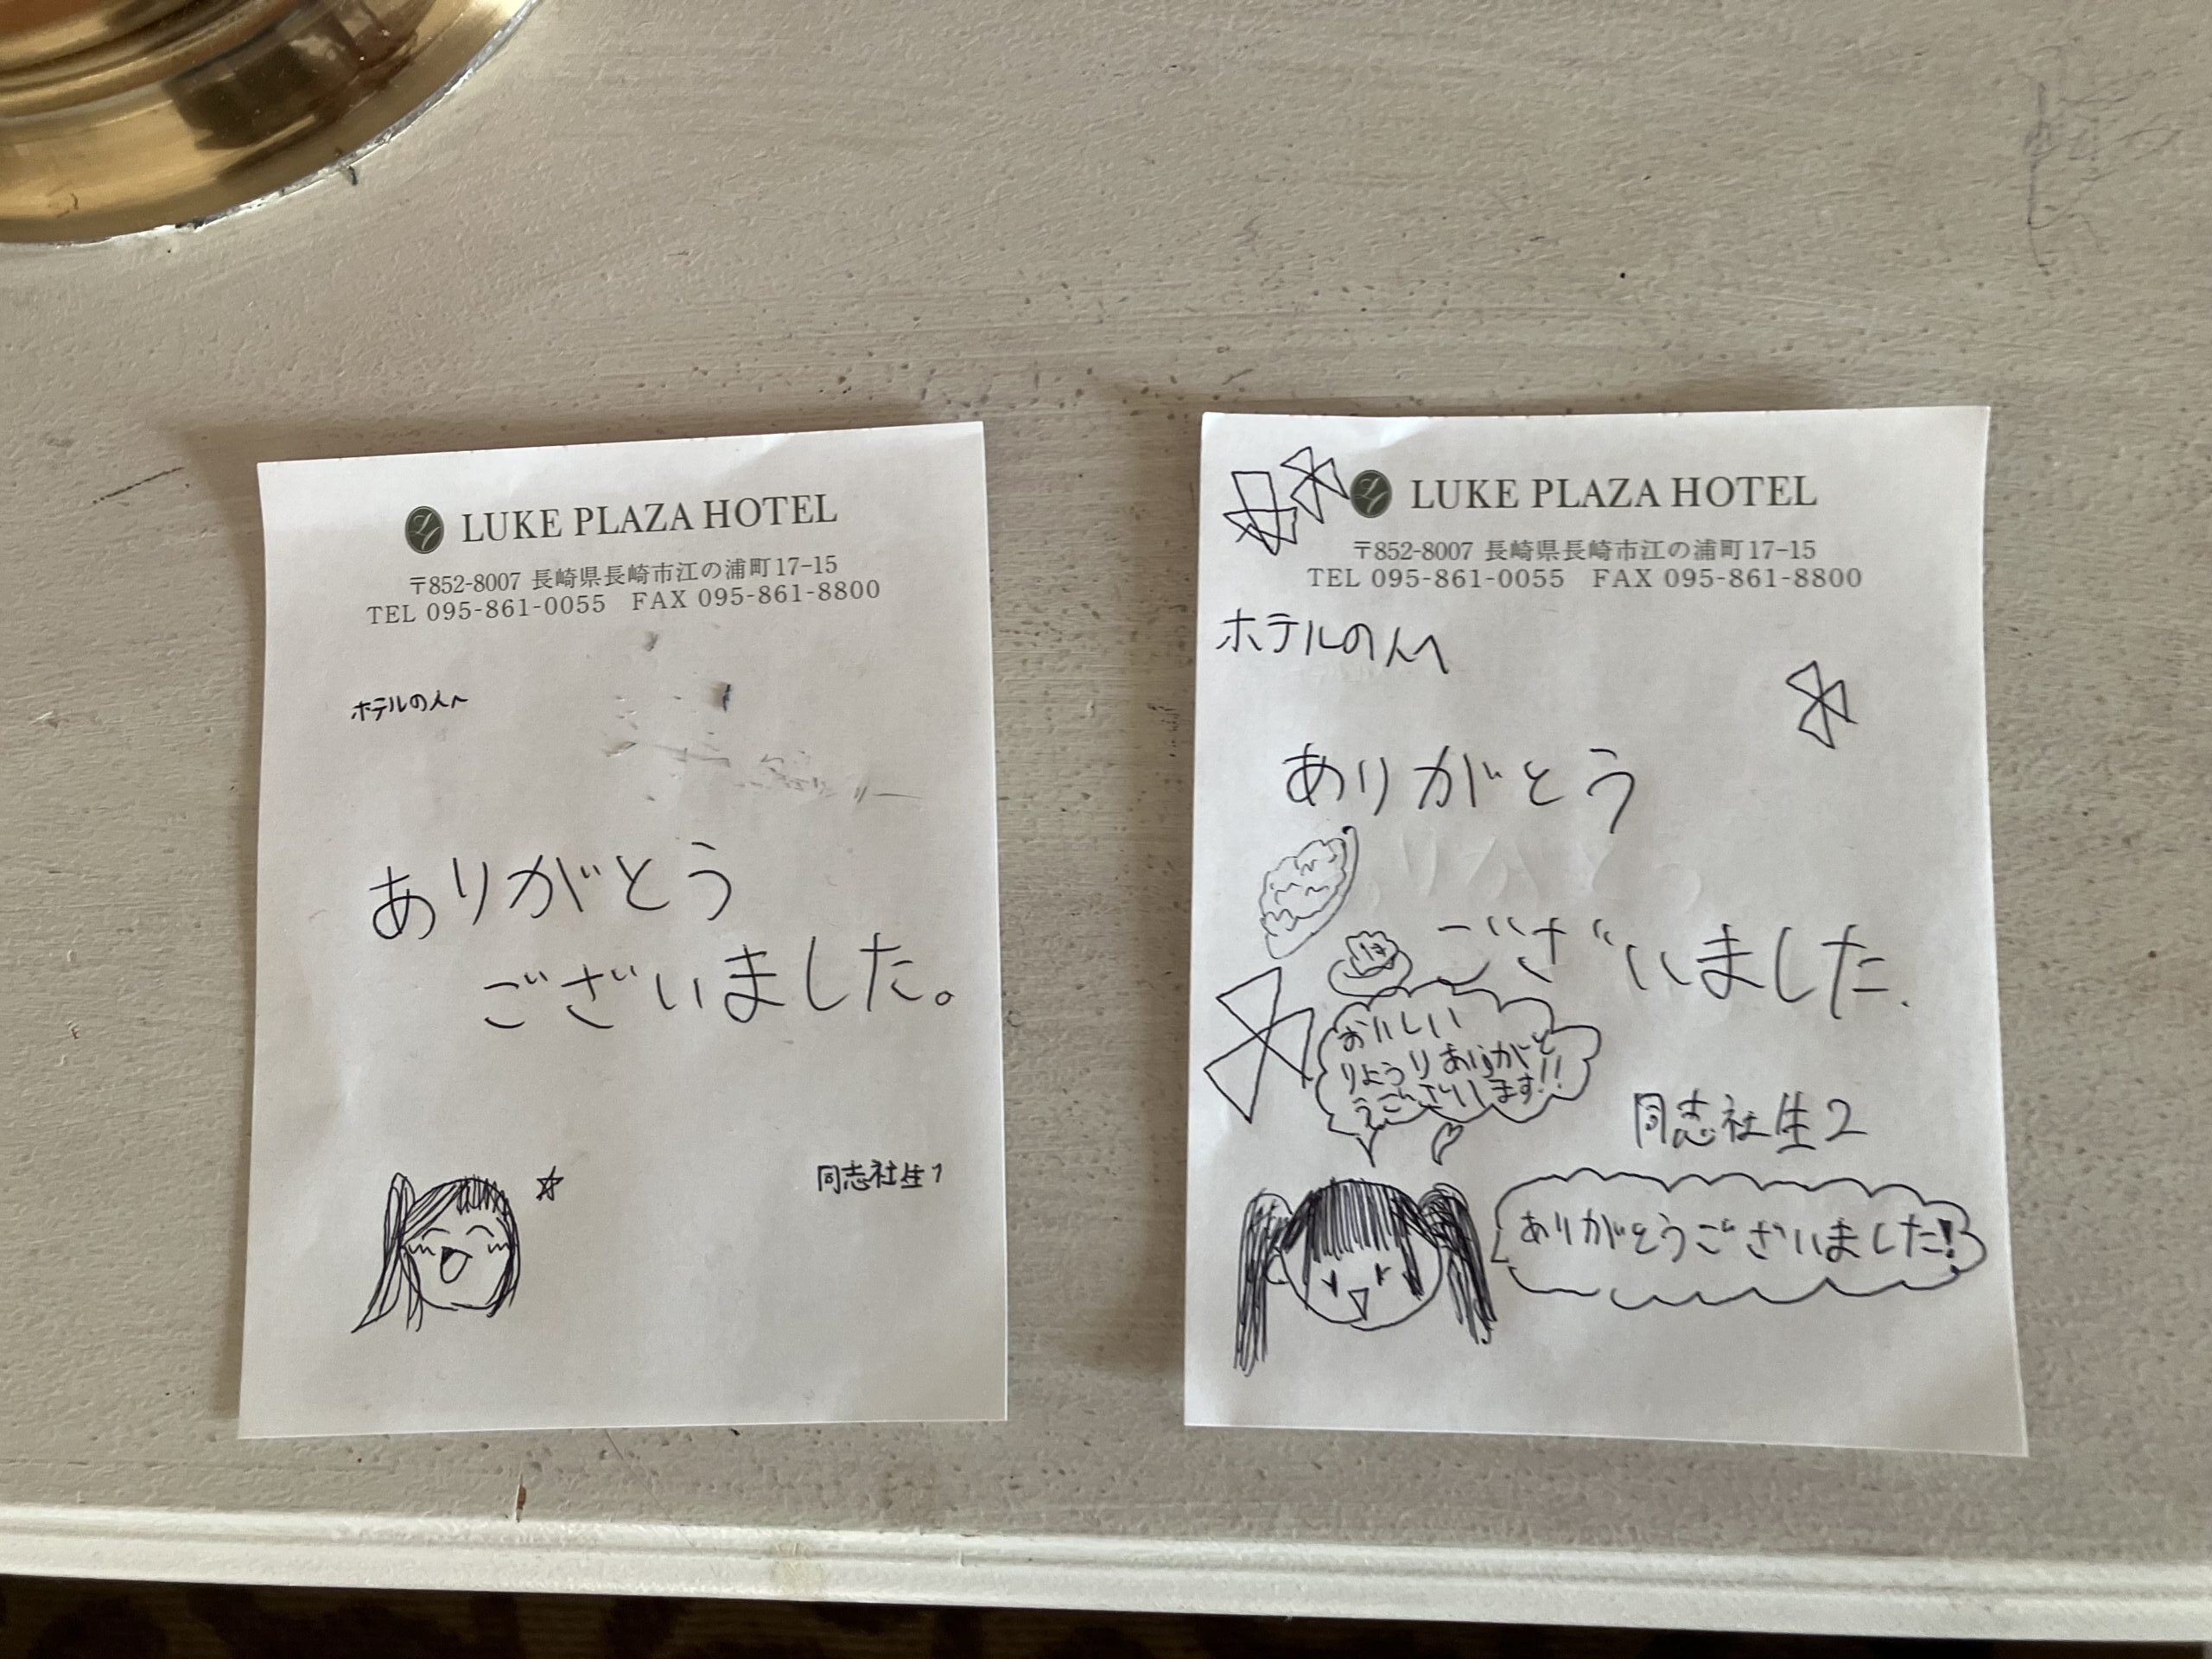 LUKE PLAZA HOTEL
〒852-8007 長崎県長崎市江の浦町17-15
TEL 095-861-0055 FAX 095-861-8800
ホテルの人へ
ありがとう
ございました。
同志社生1
LUKE PLAZA HOTEL
〒852-8007 長崎県長崎市江の浦町17-15
TEL 095-861-0055 FAX 095-861-8800
ホテルの人へ
ありがとう
ございました.
おいしい
りょうりありがと
うございします!!
同志社生2
ありがとうございました!